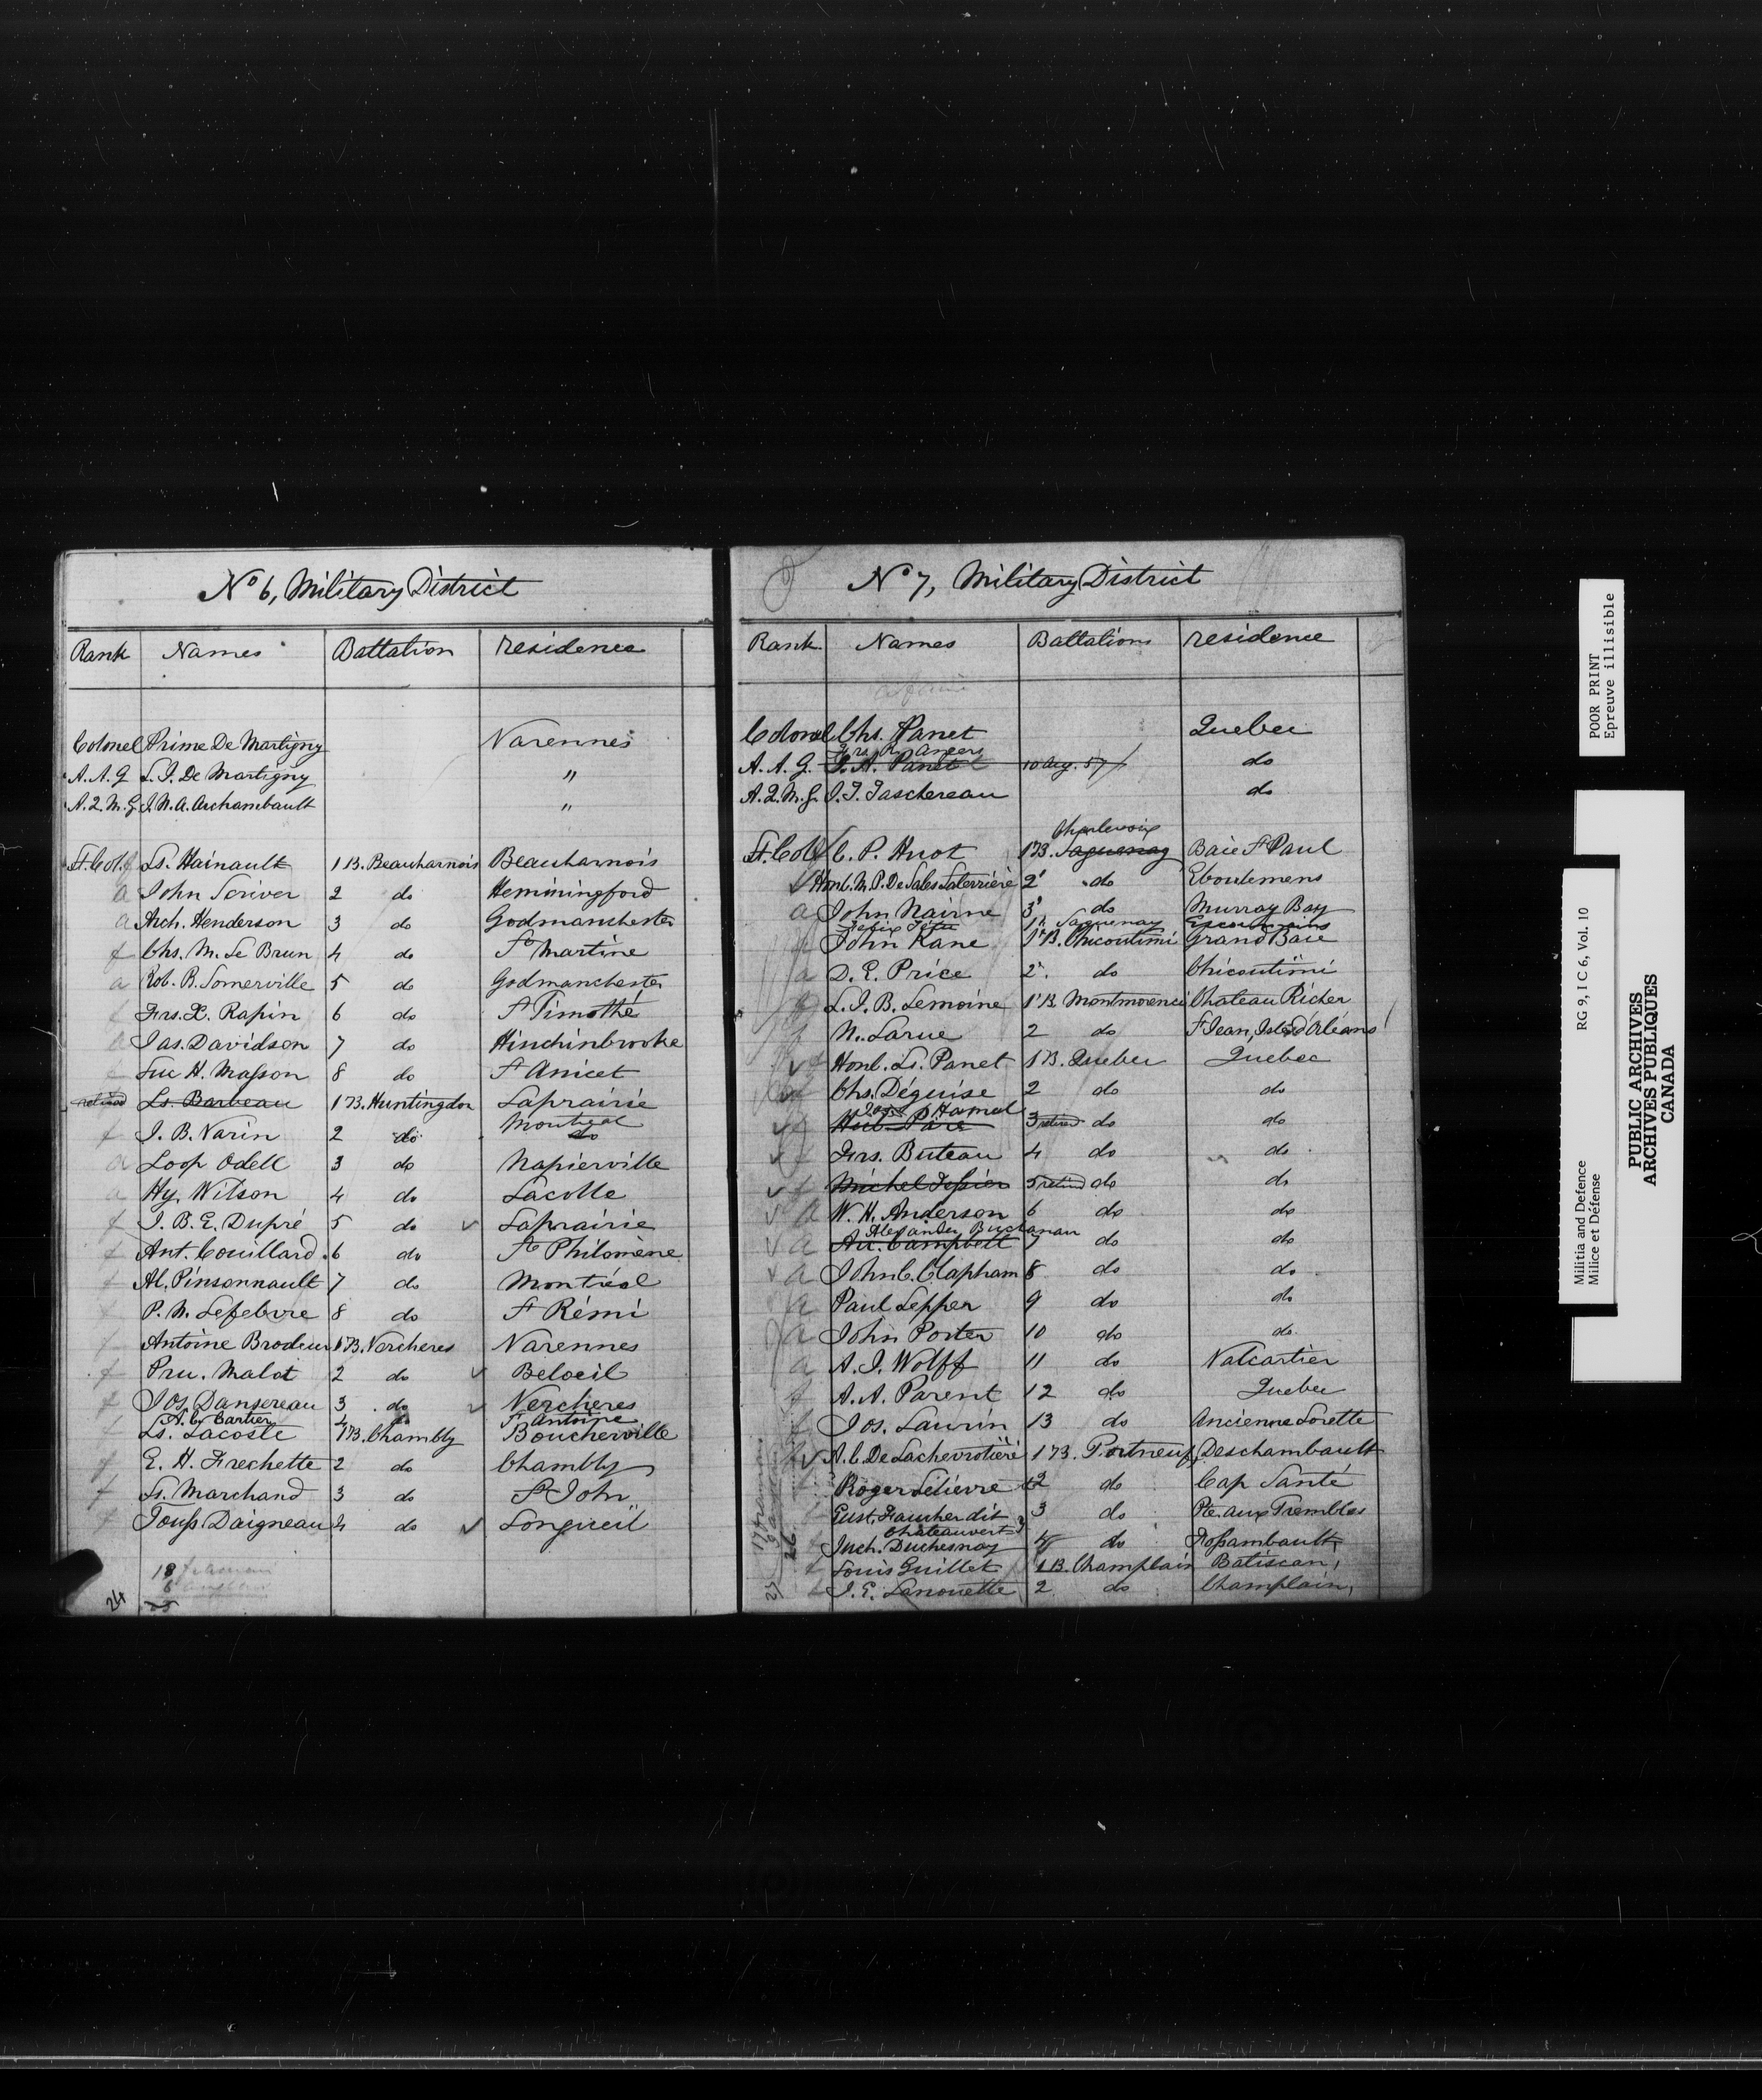 No 6, Military District
Rank Names Battalion residence
Colonel Prime De Martigny Varennes
A. A. G L. J. De Martigny "
A. Q. M. G. J. N. A. Archambault "
Lt. Col. f Ls. Hainault 1 B. Beauharnois Beauharnois
a John Scriver 2 do Hemmingford
a Arch. Henderson 3 do Godmanchester
f Chs. M. Le Brun 4 do Ste Martine
a Rob. B. Somerville 5 do Godmanchester
f Frs. X. Rapin 6 do St Timothé
Jas. Davidson 7 do Hinchinbrooke
f Luc H. Masson 8 do St Anicet
retired Ls. Barbeau 1 B. Huntingdon Laprairie
f J. B. Varin 2 do Montreal do
a Loop Odell 3 do Napierville
a Hy. Wilson 4 do Lacolle
f J. B. E. Dupré 5 do Laprairie
f Ant. Couillard 6 do Ste Philomène
f Al. Pinsonnault 7 do Montréal
f P. M. Lefebvre 8 do St Rémi
f Antoine Brodeur 1 B. Vercheres Varennes
f Pru. Malot 2 do Beloeil
f Jos. Dansereau 3 do Verchères
A. C. Cartier 4 do St Antoine
f Ls. Lacoste 1 B. Chambly Boucherville
f E. H. Frechette 2 do Chambly
f Lt. Marchand 3 do St John
f Touss. Daigneau 4 do Longueil
18
6
24
No 7, Military District
Rank Names Battalions residence
Colonel Chs. Panet Quebec
Frs. R. Angers
A. A. G. P. A. Panet 10 Aug. 57 do
A. Q. M. G. J. T. Taschereau do
Charlevoix
Lt. Col. f C. P. Huot 1 B. Saguenay Baie St Paul
Honl. M. P. De Sales Laterrière 2d do Eboulemens
a John Nairne 3d do Murray Bay
Felix Têtu 1st Saguenay Escoumins
John Kane 1st B. Chicoutimi Grand Baie
a D. E. Price 2d do Chicoutimi
L. J. B. Lemoine 1st B. Montmorenci Chateau Richer
N. Larue 2 do St Jean, Isle d'Orléans
Honl. Ls. Panet 1 B. Quebec Quebec
Chs. Déguise 2 do do
Hamel
Hub. Paré 3 retired do do
f Frs. Buteau 4 do do
f Michel Tessier 5 retired do do
a W. H. Anderson 6 do do
Alexander Buchanan
a Ar. Campbell 7 do do
a John C. Clapham 8 do do
a Paul Lepper 9 do do
a John Porter 10 do do
a A. J. Wolff 11 do Valcartier
f A. A. Parent 12 do Quebec
f Jos. Laurin 13 do Ancienne Lorette
f A. C. De Lachevrotière 1 B. Portneuf Deschambault
f Roger Lelièvre 2 do Cap Santé
f Eust. Faucher dit 3 do Pte. aux Trembles
Chateauvert
f Juch. Duchesnay 4 do Fossambault
f Louis Guillet 1 B. Champlain Batiscan,
f J. E. Lanouette 2 do Champlain,
26
POOR PRINT
Epreuve illisible
Militia and Defence
Milice et Défense
RG 9, I C 6, Vol. 10
PUBLIC ARCHIVES
ARCHIVES PUBLIQUES
CANADA